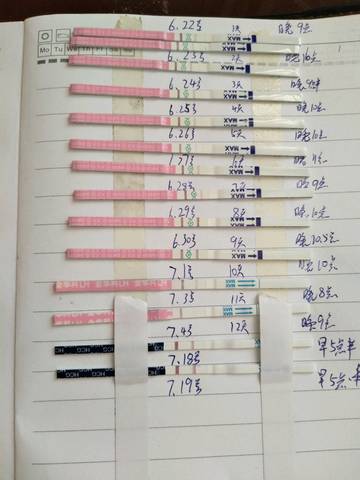 6.22号 1天 晚9点
Mo Tu We Th Fr
6.23号 2天 晚10点
MAX
6.24号 3天
MAX
6.25号 4天
MAX
6.26号 5天
MAX
6天
MAX
6.28号 7天 晚9点
MAX
6.29号 8天 晚10点
MAX
6.30号 9天 晚10点
MAX
7.1号 10天 晚10点
MAX
7.3号 11天 晚8点
MAX
7.4号 12天 晚9点
HCG HCG HCG
7.18号 早5点半
HCG HCG HCG
7.19号 早5点半